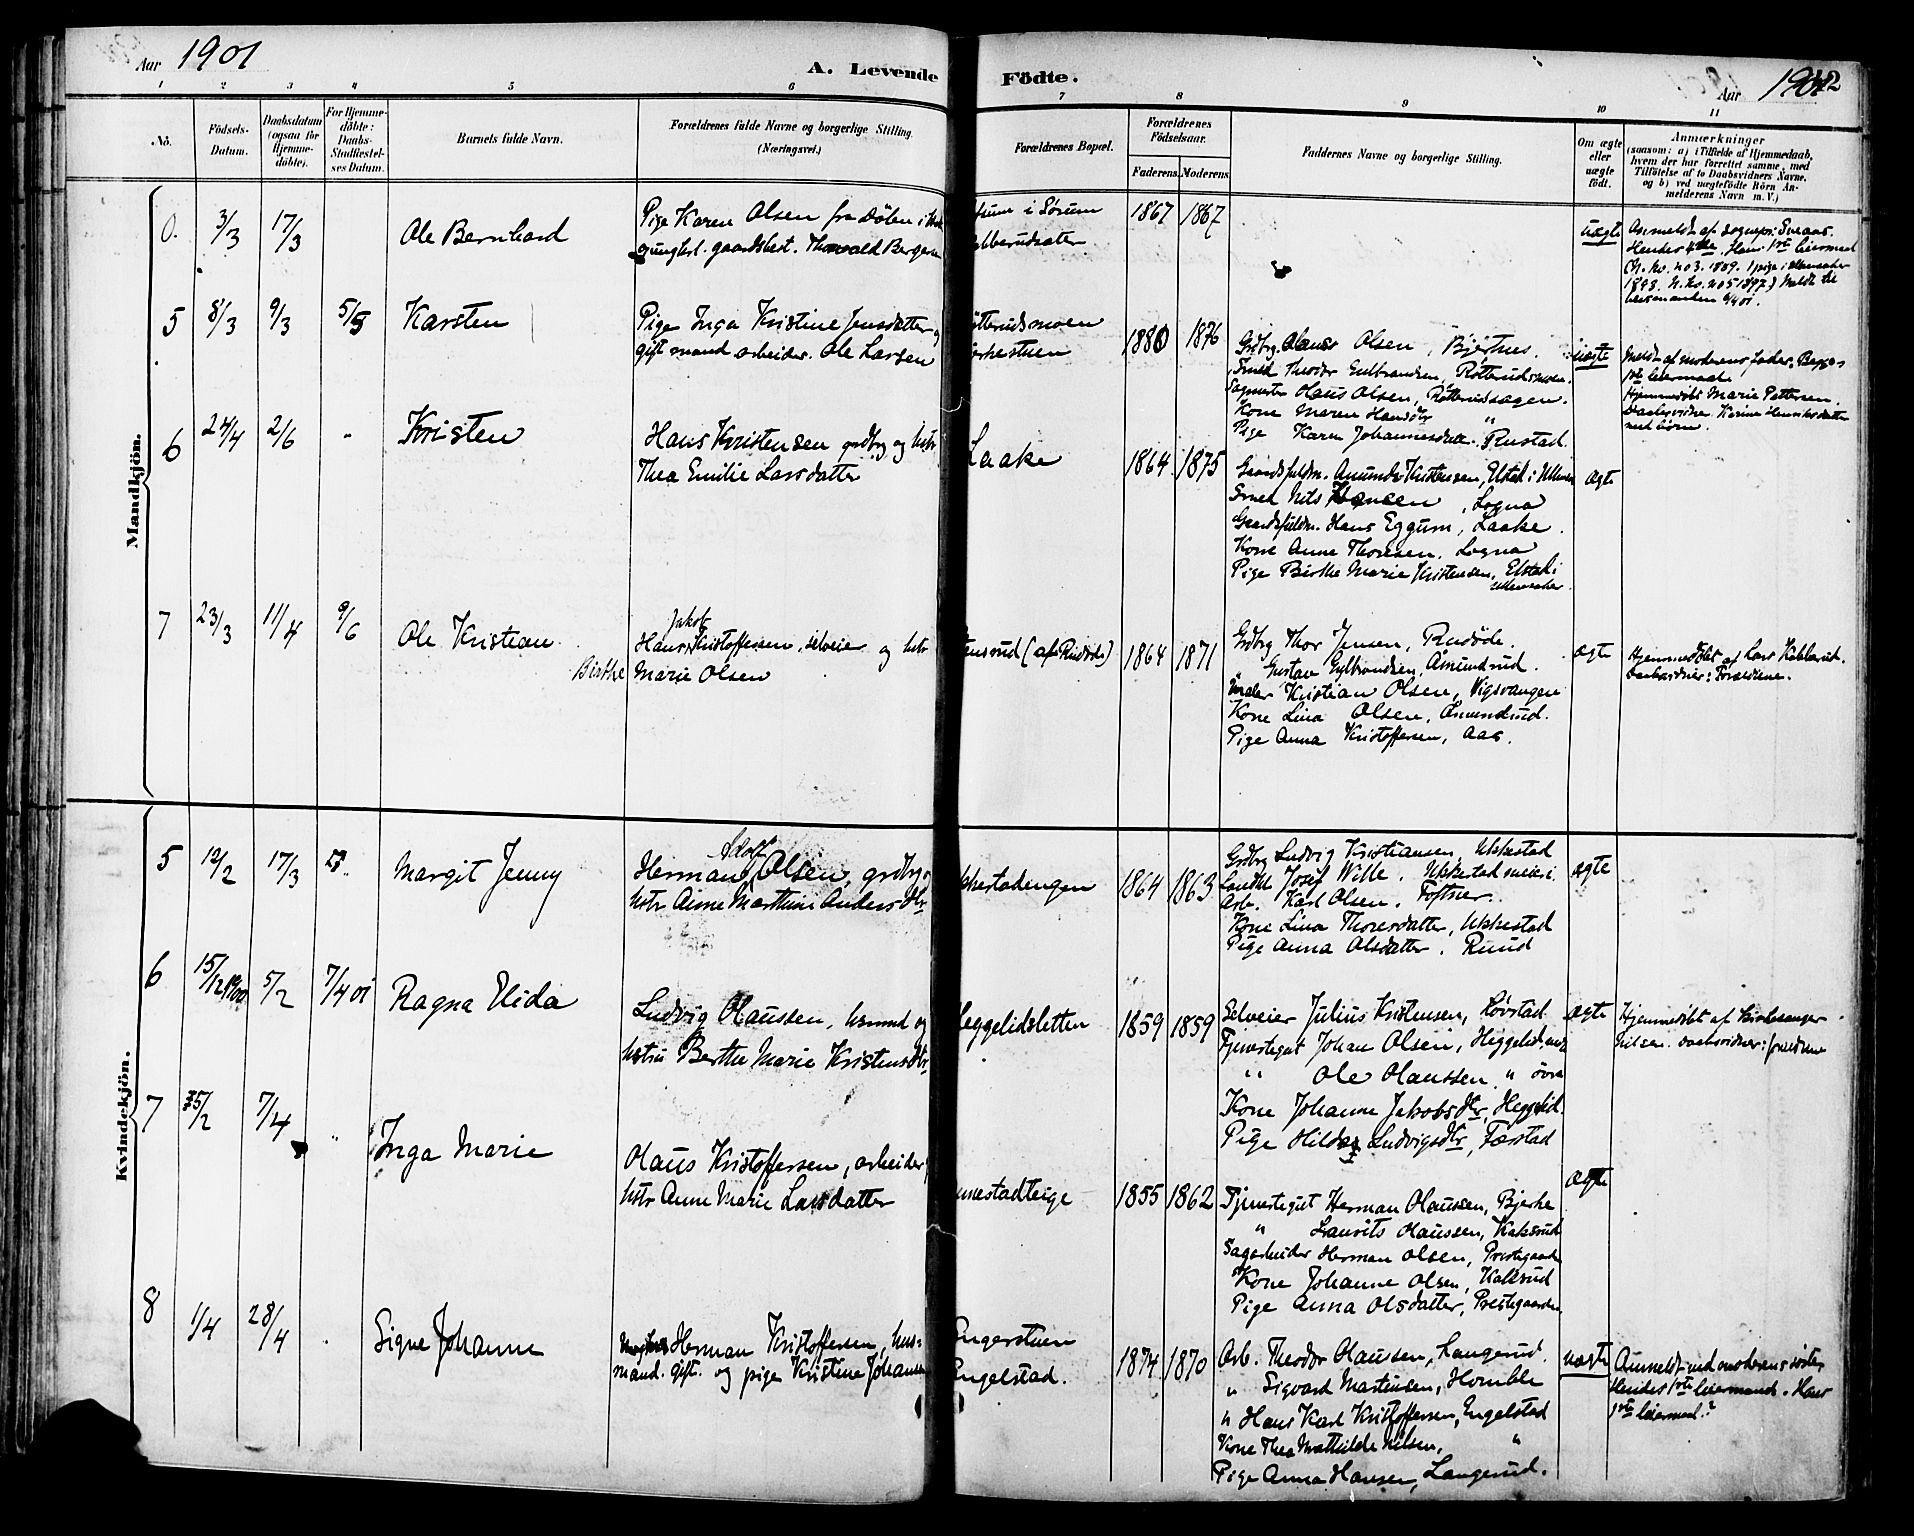 Aar 1901
A. Levende Födte.
Aar 1901 12
1 2 3 4 5 6 7 8 9 10 11
No.
Födsels-Datum.
Daabsdatum (ogsaa for Hjemme-döbte).
For Hjemme-döbte: Daabs-Stadfæstel-ses Datum.
Barnets fulde Navn.
Forældrenes fulde Navne og borgerlige Stilling. (Næringsvei.)
Forældrenes Bopæl.
Forældrenes Födselsaar.
Faderens. Moderens.
Faddernes Navne og borgerlige Stilling.
Om ægte eller uægte födt.
Anmærkninger
(saasom: a) i Tilfælde af Hjemmedaab,
hvem der har forrettet samme, med
Tilföielse af to Daabsvidners Navne.
og b) ved uægtefödte Börn An-
melderens Navn m. V.)
Mandkjön.
0. 3/3 17/3 Ole Bernhard
Pige Karen Olsen fra Dölen i
ungkl. gaardsbest. Thorvald Bergersen
i Sörum
1867 1867
uægte
Anmeldt af sognepr. Sveaas.
1898. N. ks. no 5 1897) Meldt til
5 8/3 9/3 5/5 Karsten
Pige Inga Kristine Jensdatter og
gift mand arbeider Ole Larsen
1880 1876
Grdbrg. Olaus Olsen, Bjertnes.
Smed Theodor Gulbrandsen, Rötterudsmoen.
Sagmester Olaus Olsen, Rötterudsagen.
Kone Maren Hansdtr "
Pige Karen Johannesdatt. Rustad.
uægte
Meldt af moderens fader. Begges
1ste leiermaal.
Hjemmedöbt Marie Pettersen.
6 24/4 2/6 - Kristen
Hans Kristensen grdbrg og hstr
Thea Emilie Larsdatter
Laake
1864 1875
Gaardsfuldm. Amund Kristensen, Elstad i Ullens
Smed Nils Hansen, Logna
Gaardsfuldm. Hans Eggum, Laake.
Kone Anne Thoresen, Logna
Pige Birthe Marie Kristensen, Elstad i
Ullensaker
ægte
7 23/3 11/4 9/6 Ole Kristian
Jakob
Hans Kristoffersen, selveier og hstr
Birthe Marie Olsen
(af Risöde)
1864 1871
Grdbrg Thor Jensen, Rudöde
Gustav Gulbrandsen, Amundrud.
Maler Kristian Olsen, Vigsvangen
Kone Lina Olsen, Amundrud.
Pige Anna Kristoffersen, Aas.
ægte
Hjemmedöbt af Lars Kablerud.
Daabsvidner: Forældrene.
Kvindekjön.
5 12/2 17/3 Margit Jenny
Adolf
Herman Olsen, grdbrg.
hstr Anne Marthine Andersdtr
kkestadengen
1864 1863
Grdbrg Ludvig Kristiansen, Ukkestad
Josef Wille. Ukkestad meieri
Arb. Karl Olsen. Toftner.
Kone Lina Thoresdatter, Ukkestad
Pige Anna Olsdatter. Ruud
ægte
6 15/12 1900 5/2 7/4 01 Ragna Elida
Ludvig Olaussen, husmd og
hstru Berthe Marie Kristensdtr
eggelidsletten
1859 1859
Selveier Julius Kristensen, Lövstad
Tjenestegut Johan Olsen, Heggelid, nedre
" Ole Olaussen " övre
Kone Johanne Jakobsdtr Heggelid.
Pige Hilda Ludvigsdtr, Færstad
ægte
Hjemmedöbt af Kirkesanger
Nilsen. Daabsvidner: forældrene
7 25/2 7/4 " Inga Marie
Olaus Kristoffersen, arbeider,
hstr Anne Marie Larsdatter
nestadteige
1855 1862
Tjenestegut Herman Olaussen, Bjerke
" Laurits Olaussen, Kalsrud
Sagarbeider Herman Olsen, Prestegaarden
Kone Johanne Olsen, Kalsrud
Pige Anna Olsdatter, Prestegaarden
ægte
8 1/4 28/4 . Signe Johanne
Herman Kristoffersen, hus-
mand. gift. og pige Kristine Johansen
Engerstuen
Engelstad.
1874 1870
Arb. Theodor Olaussen, Langerud.
" Sigvard Martinsen, Homble
" Hans Karl Kristoffersen, Engelstad
Kone Thea Mathilde Nilsen, "
Pige Anna Hansen, Langerud.
uægte
Anmeldt ved moderens söster
Hendes 1ste leiermaal. Hans
1ste leiermaal?